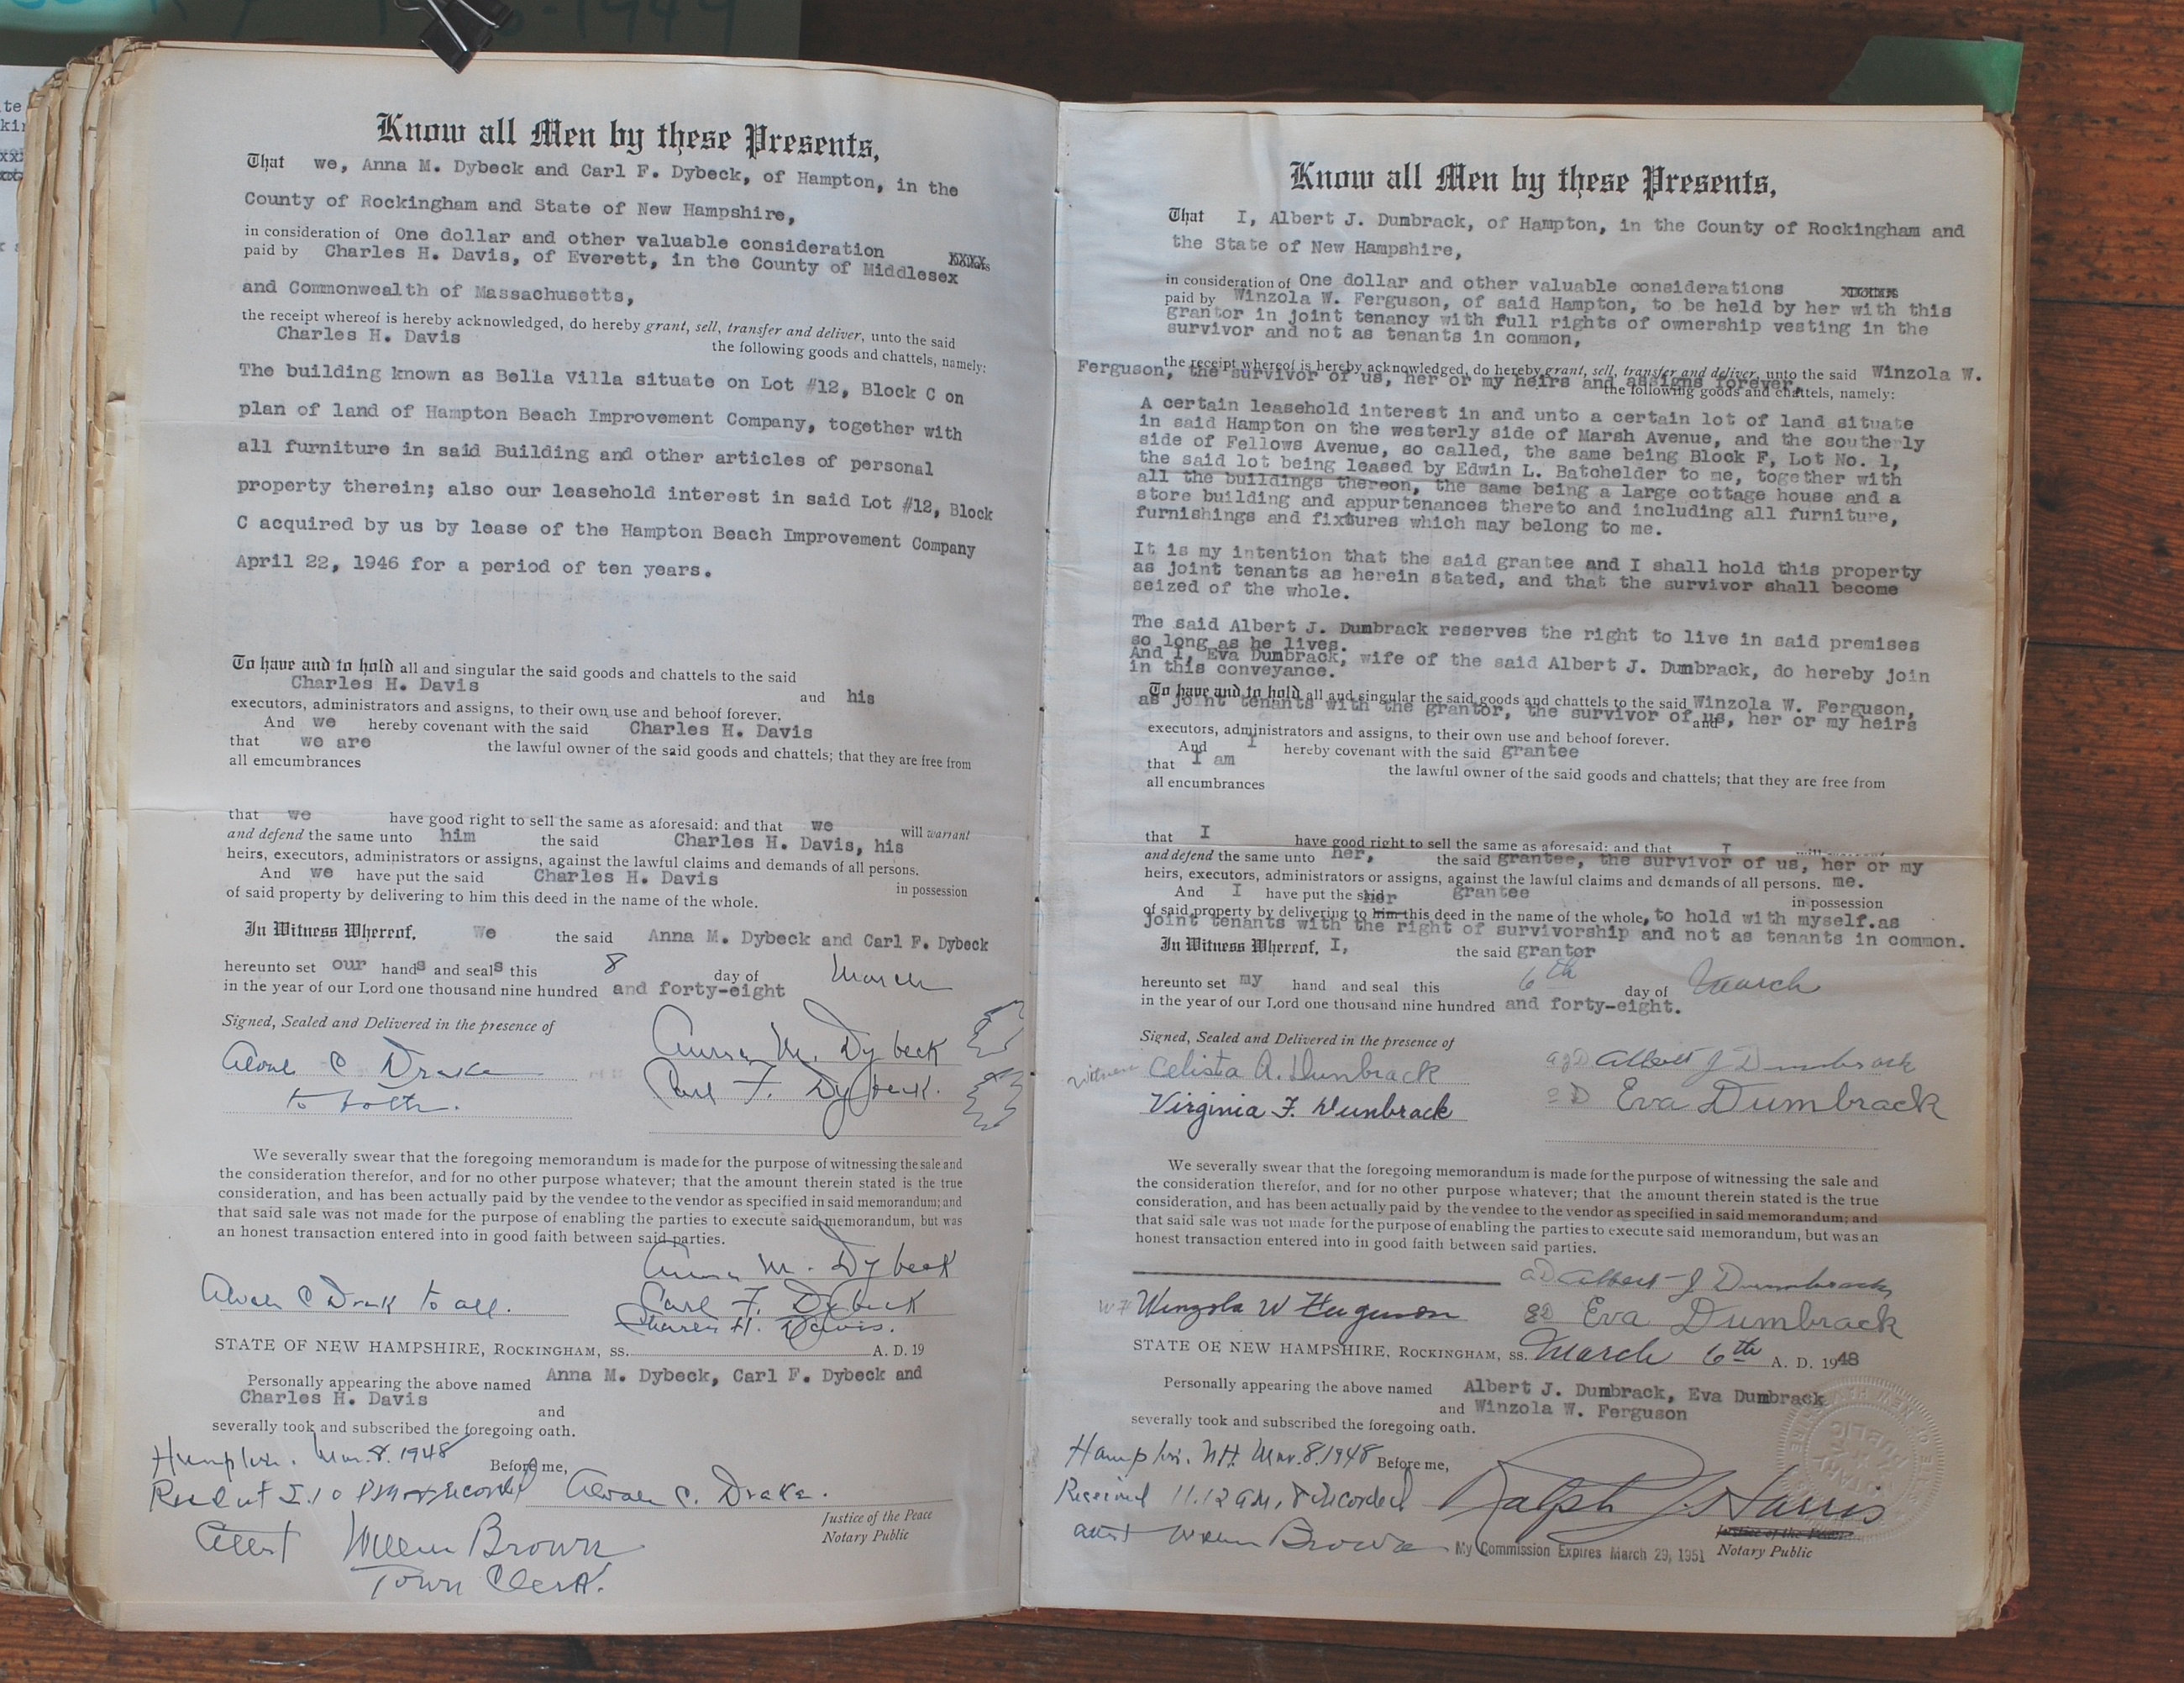 Know all Men by these Presents,
That we, Anna M. Dybeck and Carl F. Dybeck, of Hampton, in the
County of Rockingham and State of New Hampshire,
in consideration of One dollar and other valuable consideration
paid by Charles H. Davis, of Everett, in the County of Middlesex
and Commonwealth of Massachusetts,
the receipt whereof is hereby acknowledged, do hereby grant, sell, transfer and deliver, unto the said
Charles H. Davis the following goods and chattels, namely:
The building known as Bella Villa situate on Lot #12, Block C on
plan of land of Hampton Beach Improvement Company, together with
all furniture in said Building and other articles of personal
property therein; also our leasehold interest in said Lot #12, Block
C acquired by us by lease of the Hampton Beach Improvement Company
April 22, 1946 for a period of ten years.
To have and to hold all and singular the said goods and chattels to the said
Charles H. Davis and his
executors, administrators and assigns, to their own use and behoof forever.
And we hereby covenant with the said Charles H. Davis
that we are the lawful owner of the said goods and chattels; that they are free from
all emcumbrances
that we have good right to sell the same as aforesaid: and that we will warrant
and defend the same unto him the said Charles H. Davis, his
heirs, executors, administrators or assigns, against the lawful claims and demands of all persons.
And we have put the said Charles H. Davis in possession
of said property by delivering to him this deed in the name of the whole.
In Witness Whereof, We the said Anna M. Dybeck and Carl F. Dybeck
hereunto set our hands and seals this 8 day of March
in the year of our Lord one thousand nine hundred and forty-eight
Signed, Sealed and Delivered in the presence of
Anna M. Dybeck
C Drake
Carl F. Dybeck.
to both.
We severally swear that the foregoing memorandum is made for the purpose of witnessing the sale and
the consideration therefor, and for no other purpose whatever; that the amount therein stated is the true
consideration, and has been actually paid by the vendee to the vendor as specified in said memorandum; and
that said sale was not made for the purpose of enabling the parties to execute said memorandum, but was
an honest transaction entered into in good faith between said parties.
Anna M. Dybeck
C Drake to all. Carl F. Dybeck
Charles H. Davis.
STATE OF NEW HAMPSHIRE, ROCKINGHAM, SS. A. D. 19
Personally appearing the above named Anna M. Dybeck, Carl F. Dybeck and
Charles H. Davis and
severally took and subscribed the foregoing oath.
Hampton. Mar. 8. 1948 Before me,
Recd at 2.10 PM & recorded C. Drake.
Attest Brown Justice of the Peace
Notary Public
Town Clerk.
Know all Men by these Presents,
That I, Albert J. Dumbrack, of Hampton, in the County of Rockingham and
the State of New Hampshire,
in consideration of One dollar and other valuable considerations
paid by Winzola W. Ferguson, of said Hampton, to be held by her with this
grantor in joint tenancy with full rights of ownership vesting in the
survivor and not as tenants in common,
the receipt whereof is hereby acknowledged, do hereby grant, sell, transfer and deliver, unto the said Winzola W.
Ferguson, the survivor of us, her or my heirs and assigns forever,
the following goods and chattels, namely:
A certain leasehold interest in and unto a certain lot of land situate
in said Hampton on the westerly side of Marsh Avenue, and the southerly
side of Fellows Avenue, so called, the same being Block F, Lot No. 1,
the said lot being leased by Edwin L. Batchelder to me, together with
all the buildings thereon, the same being a large cottage house and a
store building and appurtenances thereto and including all furniture,
furnishings and fixtures which may belong to me.
It is my intention that the said grantee and I shall hold this property
as joint tenants as herein stated, and that the survivor shall become
seized of the whole.
The said Albert J. Dumbrack reserves the right to live in said premises
so long as he lives.
And I, Eva Dumbrack, wife of the said Albert J. Dumbrack, do hereby join
in this conveyance.
To have and to hold all and singular the said goods and chattels to the said Winzola W. Ferguson,
as joint tenants with the grantor, the survivor of us, her or my heirs
and
executors, administrators and assigns, to their own use and behoof forever.
And I hereby covenant with the said grantee
that I am the lawful owner of the said goods and chattels; that they are free from
all encumbrances
that I have good right to sell the same as aforesaid: and that I
and defend the same unto her, the said grantee, the survivor of us, her or my
heirs, executors, administrators or assigns, against the lawful claims and demands of all persons. me.
And I have put the said grantee in possession
her
of said property by delivering to him this deed in the name of the whole, to hold with myself.as
joint tenants with the right of survivorship and not as tenants in common.
In Witness Whereof, I, the said grantor
hereunto set my hand and seal this 6th day of March
in the year of our Lord one thousand nine hundred and forty-eight.
Signed, Sealed and Delivered in the presence of
witness Celista A. Dunbrack AJD Albert J Dumbrack
Virginia F. Dunbrack ED Eva Dumbrack
We severally swear that the foregoing memorandum is made for the purpose of witnessing the sale and
the consideration therefor, and for no other purpose whatever; that the amount therein stated is the true
consideration, and has been actually paid by the vendee to the vendor as specified in said memorandum; and
that said sale was not made for the purpose of enabling the parties to execute said memorandum, but was an
honest transaction entered into in good faith between said parties.
AD Albert J Dumbrack
WF Winzola W Ferguson ED Eva Dumbrack
STATE OF NEW HAMPSHIRE, ROCKINGHAM, SS. March 6th A. D. 1948
Personally appearing the above named Albert J. Dumbrack, Eva Dumbrack
and Winzola W. Ferguson
severally took and subscribed the foregoing oath.
Hampton. N.H. Mar. 8. 1948 Before me,
Received 11.12 AM. & recorded Ralph J. Harris
Attest Brown Justice of the Peace
My Commission Expires March 29, 1951 Notary Public